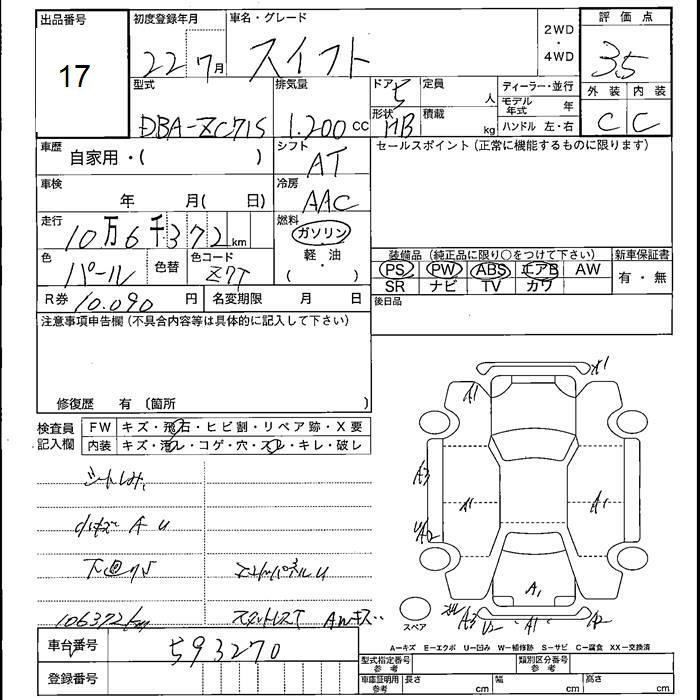 出品番号 初度登録年月 車名・グレード 2WD・4WD 評価点
17 22 7月 スイフト 3.5
型式 排気量 ドア 5 定員 人 ディーラー・並行 外装 内装
形状 HB 積載 kg モデル年式 年
DBA-ZC71S 1.200cc ハンドル 左・右 C C
車歴 自家用・( ) シフト AT セールスポイント(正常に機能するものに限ります)
車検 年 月( 日) 冷房 AAC
走行 10万6千372km 燃料 ガソリン 軽油 ( )
色 パール 色替 色コード Z7T
装備品(純正品に限り○をつけて下さい) 新車保証書
PS PW ABS エアB AW 有・無
SR ナビ TV カワ
R券 10.090円 名変期限 月 日 後日品
注意事項申告欄(不具合内容等は具体的に記入して下さい)
修復歴 有 〔箇所 〕
検査員記入欄 FW キズ・飛石・ヒビ割・リペア跡・X要
内装 キズ・汚レ・コゲ・穴・スレ・キレ・破レ
シートしみ
小キズ A U
A1 X1
A3 A1 A1
UA2
A1
A3 U2 A1 A2
スペア
106372km スタットレスT AWキズ
A=キズ E=エクボ U=凹み W=補修跡 S=サビ C=腐食 XX=交換済
車台番号 593270
型式指定番号 参考 類別区分番号 参考
登録番号 車庫証明用 参考 長さ cm 幅 cm 高さ cm